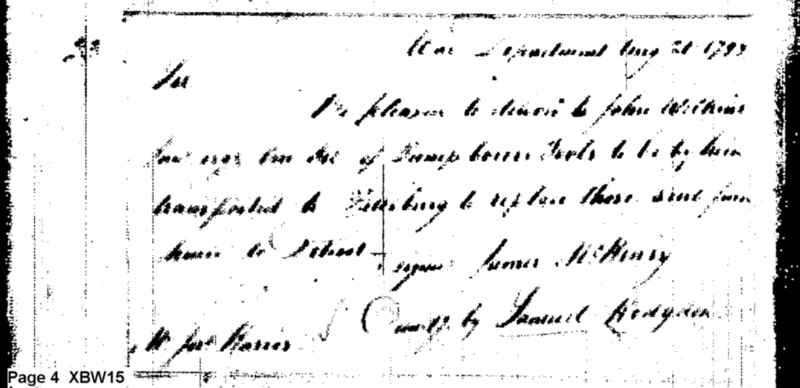 War Department Aug 21 1797
Sir
Be pleased to deliver to John Wilkins
Jun esqr two of Pump borers Tools to be by him
transported to Pittsburg to replace those sent from
hence to Detroit
signed James McHenry
by Samuel Hodgdon
Mr Jos Harris
Page 4 XBW15